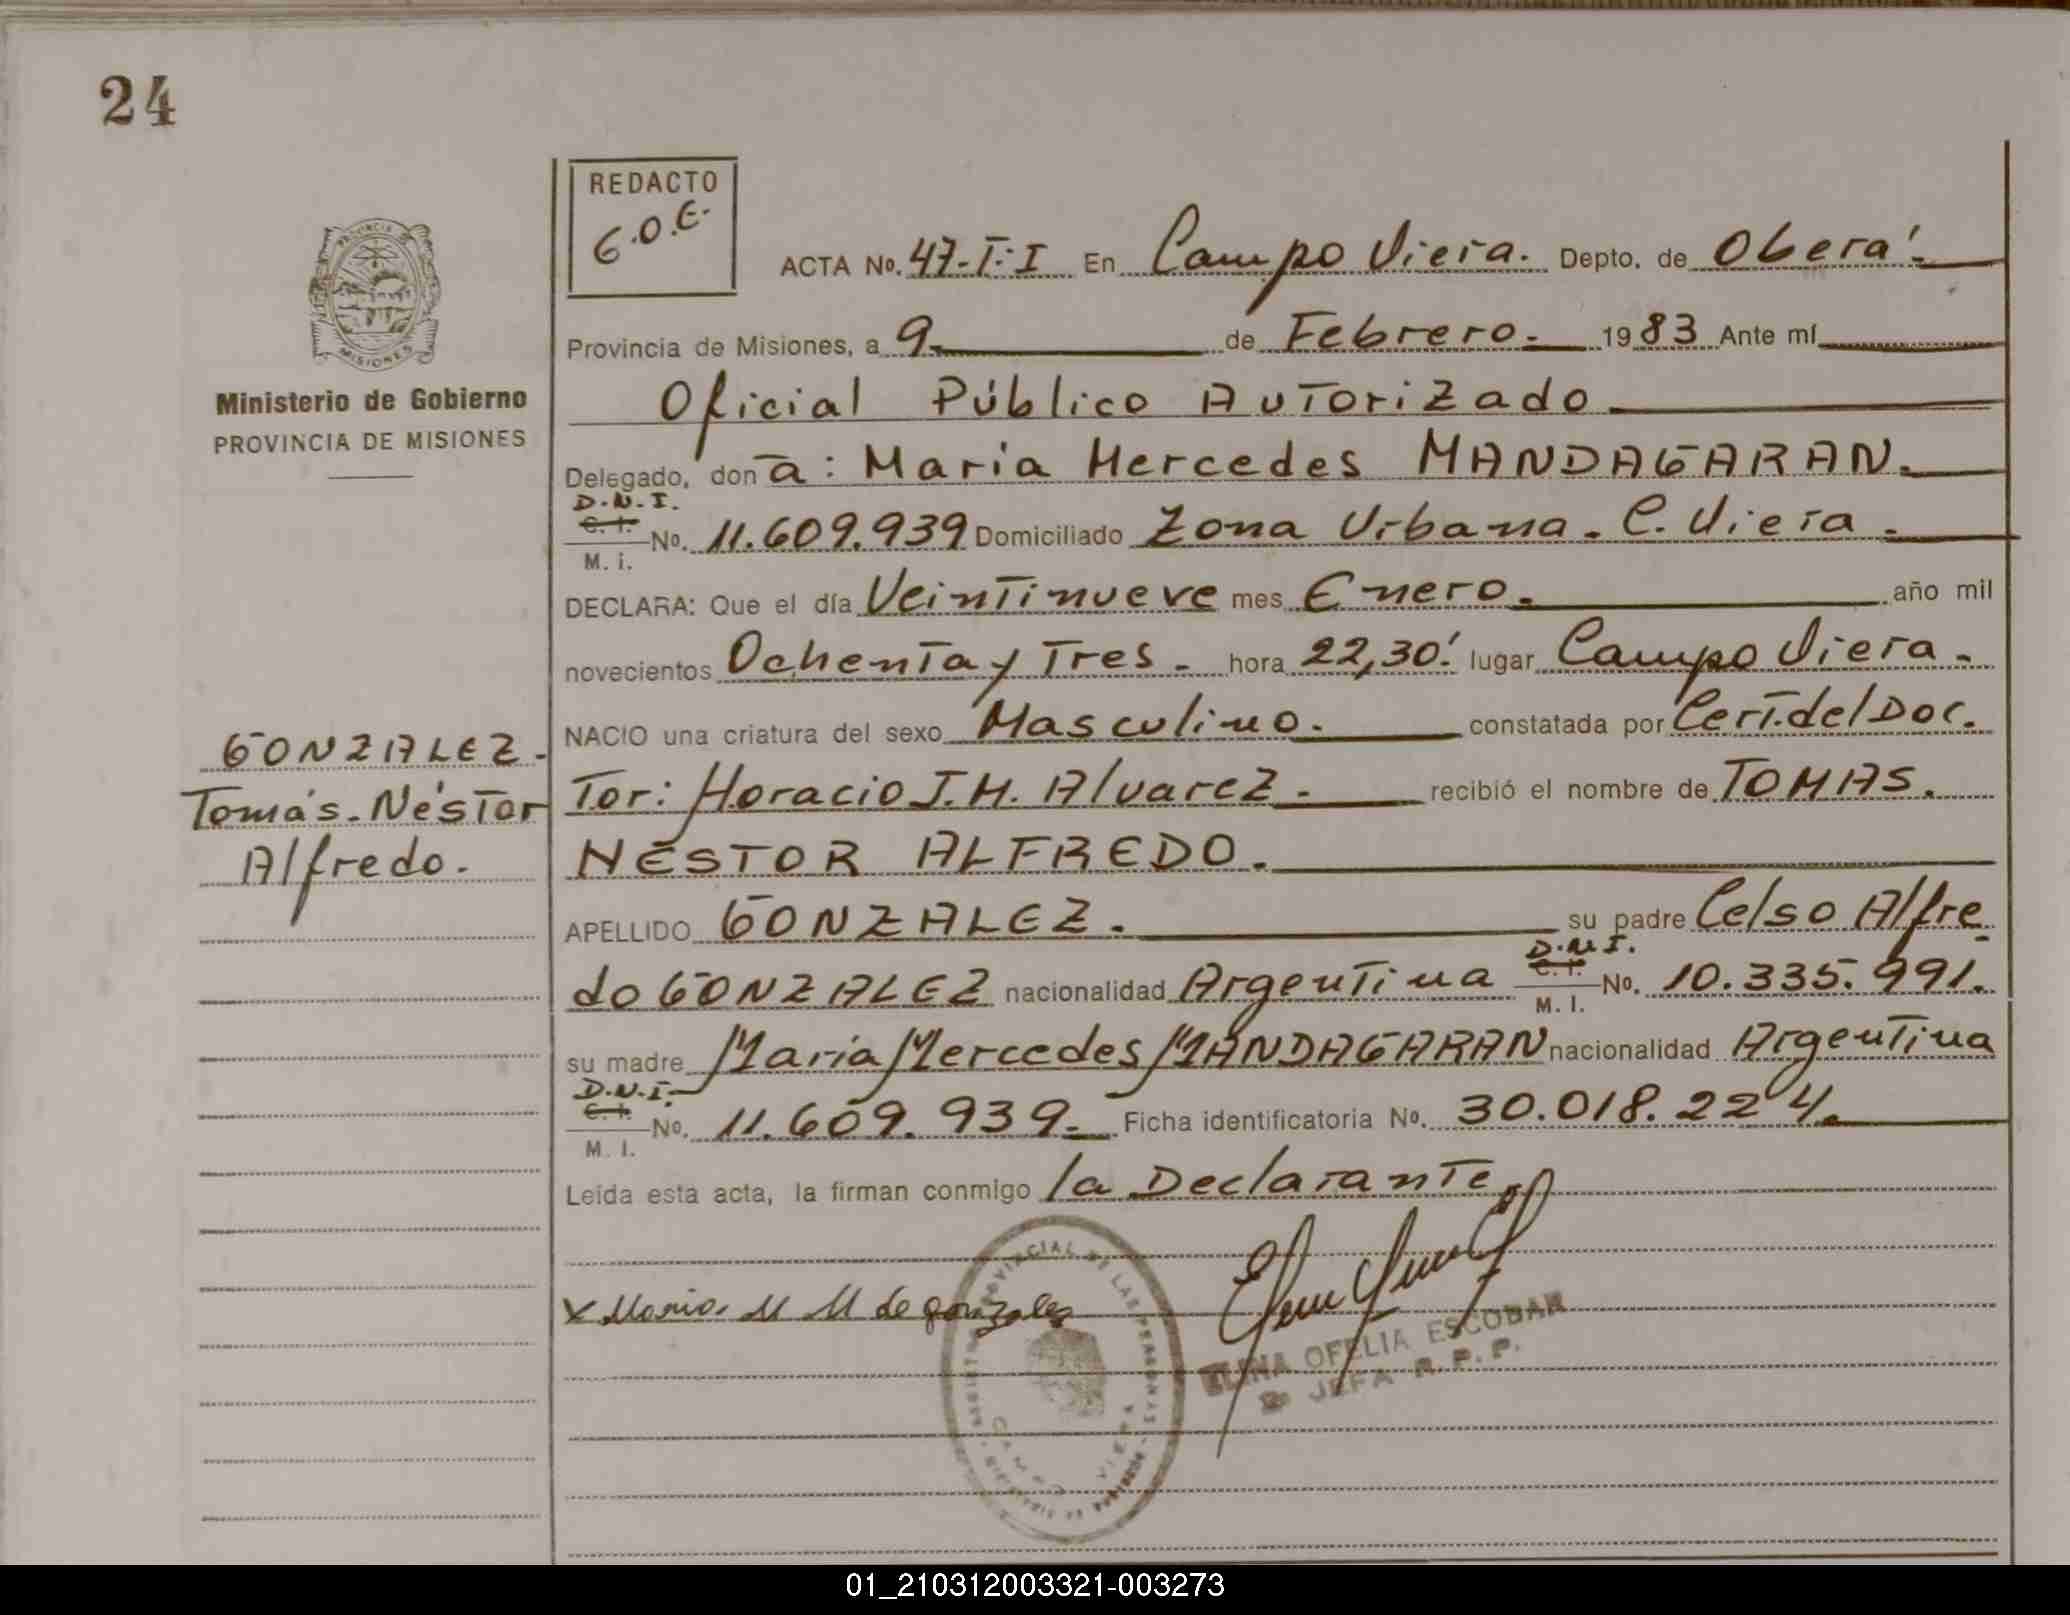 24
REDACTO
G.O.E.
ACTA No. 47-T:I En Campo Viera. Depto. de Oberá.
Provincia de Misiones, a 9 de Febrero. 1983 Ante mí
Oficial Público Autorizado
Delegado, don a: Maria Mercedes MANDAGARAN.
D.N.I.
C. I.
No. 11.609.939 Domiciliado Zona Urbana. C. Viera.
M. i.
DECLARA: Que el día Veintinueve mes Enero. año mil
novecientos Ochenta y Tres. hora 22,30' lugar Campo Viera.
NACIO una criatura del sexo Masculino. constatada por Cert. del Doc.
Tor: Horacio J.H. Alvarez. recibió el nombre de TOMAS.
NÉSTOR ALFREDO.
APELLIDO GONZALEZ. su padre Celso Alfre
D.N.I.
C. I.
do GONZALEZ nacionalidad Argentina No. 10.335.991.
M. I.
su madre María Mercedes MANDAGARAN nacionalidad Argentina
D.N.I.
C. I.
No. 11.609.939. Ficha identificatoria No. 30.018.224.
M. I.
Leída esta acta, la firman conmigo la Declarante.
x Maria M M de gonzalez
ELINA OFELIA ESCOBAR
JEFA R.P.P.
PROVINCIAL DE LAS PERSONAS
CAMPO VIERA
PROVINCIA DE
MISIONES
Ministerio de Gobierno
PROVINCIA DE MISIONES
GONZALEZ.
Tomás. Néstor
Alfredo.
01_210312003321-003273